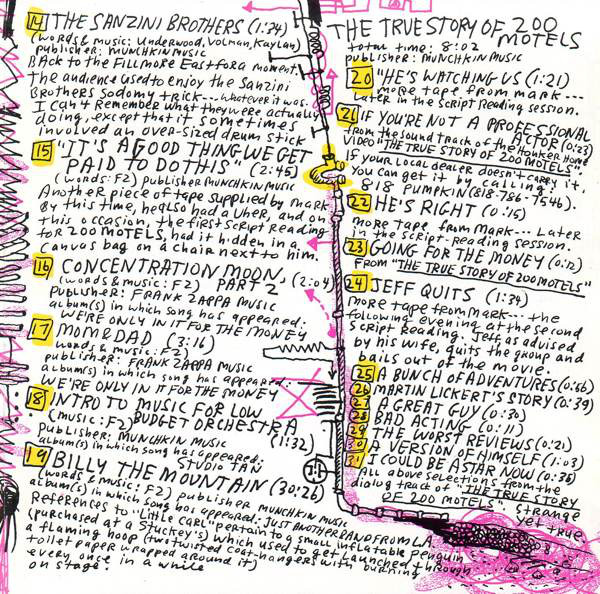 14 THE SANZINI BROTHERS (1:34)
(words & music: Underwood, Volman, Kaylan)
publisher: MUNCHKIN MUSIC
BACK to the FILLMORE EAST for a moment.
The audience used to enjoy the Sanzini
Brothers sodomy trick--- whatever it was.
I can't remember what they were actually
doing, except that it sometimes
involved an over-sized drum stick
15 "IT'S A GOOD THING WE GET
PAID TO DO THIS" (2:45)
(words: FZ) publisher MUNCHKIN MUSIC
Another piece of tape supplied by mark
By this time, he also had a UHER, and on
this occasion, the first Script Reading
for 200 MOTELS, had it hidden in a
canvas bag on a chair next to him.
16 CONCENTRATION MOON,
PART 2 (2:04)
(words & music: FZ)
Publisher: FRANK ZAPPA MUSIC
album(s) in which song has appeared:
WE'RE ONLY IN IT FOR THE MONEY
17 MOM & DAD (3:16)
words & music: FZ)
publisher: FRANK ZAPPA MUSIC
album(s) in which song has appeared:
WE'RE ONLY IN IT FOR THE MONEY
18 INTRO TO MUSIC FOR LOW
BUDGET ORCHESTRA
(music: FZ) (1:32)
Publisher: MUNCHKIN MUSIC
album(s) in which song has appeared:
STUDIO TAN
19 BILLY THE MOUNTAIN (30:26)
(words & music: FZ) publisher MUNCHKIN MUSIC
album(s) in which song has appeared: JUST ANOTHER BAND FROM L.A.
References to "Little Carl" pertain to a small inflatable penguin
(purchased at a Stuckey's) which used to get launched through
a flaming hoop (two twisted coat-hangers with burning
toilet paper wrapped around it)
every once in a while
on stage.
THE TRUE STORY OF 200
MOTELS
total time: 8:02
publisher: MUNCHKIN MUSIC
20 "HE'S WATCHING US (1:21)
more tape from mark---
Later in the Script Reading session.
21 IF YOU'RE NOT A PROFESSIONAL
ACTOR (0:23)
from the sound track of the Honker Home
Video "THE TRUE STORY OF 200 MOTELS".
If your local dealer doesn't carry it,
You can get it by calling:
818 PUMPKIN (818-786-7546).
22 HE'S RIGHT (0:15)
more tape from mark--- Later
in the script-reading session.
23 GOING FOR THE MONEY (0:12)
FROM "THE TRUE STORY OF 200 MOTELS"
24 JEFF QUITS (1:34)
more tape from mark--- the
following evening at the second
Script Reading. Jeff as advised
by his wife, quits the group and
bails out of the movie.
25 A BUNCH OF ADVENTURES (0:56)
26 MARTIN LICKERT'S STORY (0:39)
27 A GREAT GUY (0:30)
28 BAD ACTING (0:11)
29 THE WORST REVIEWS (0:21)
30 A VERSION OF HIMSELF (1:03)
31 I COULD BE A STAR NOW (0:36)
All above selections from the
dialog track of "THE TRUE STORY
OF 200 MOTELS". Strange
yet true.